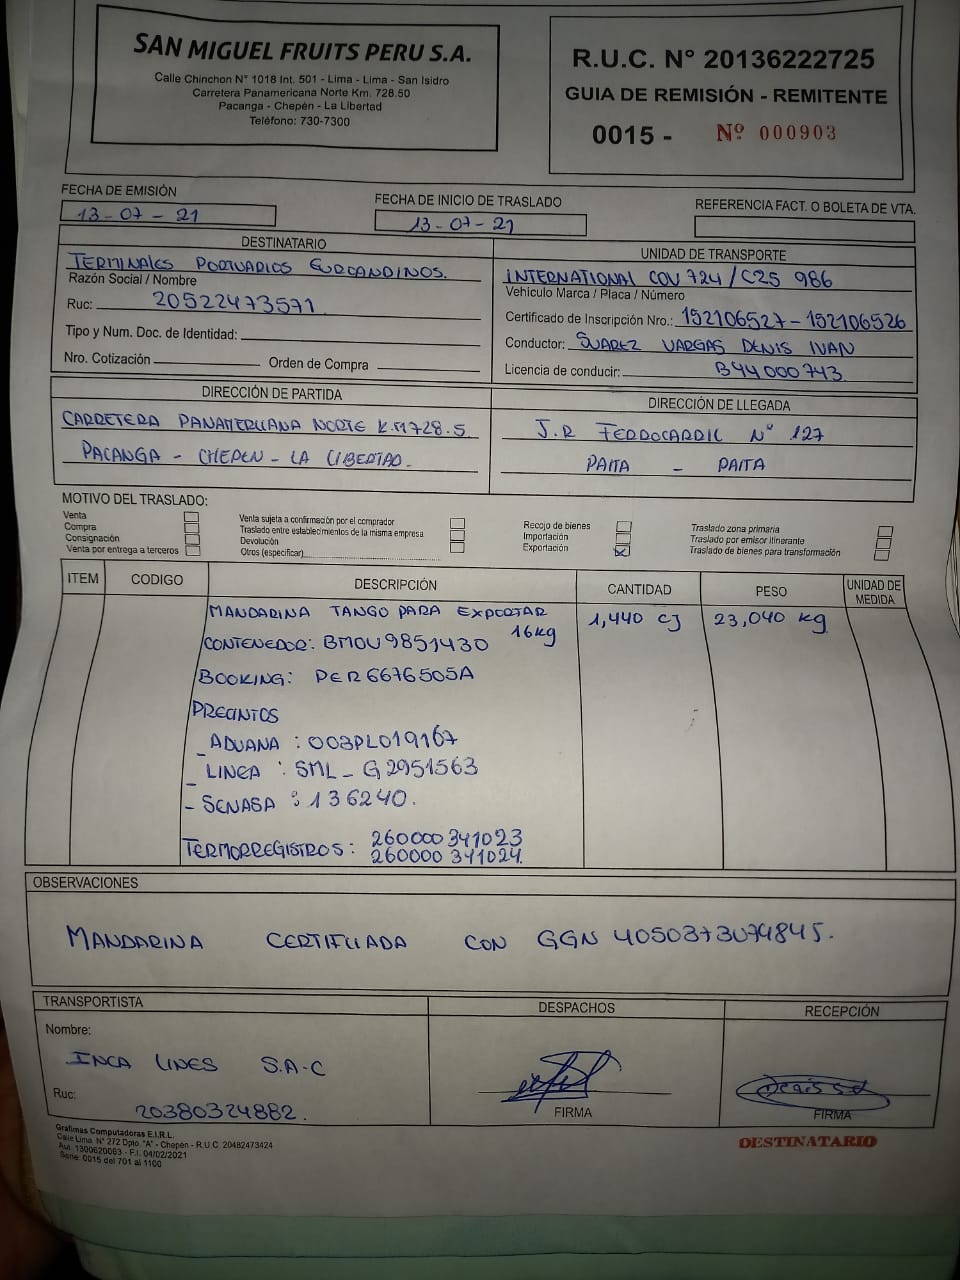 SAN MIGUEL FRUITS PERU S.A.
Calle Chinchon N° 1018 Int. 501 - Lima - Lima - San Isidro
Carretera Panamericana Norte Km. 728.50
Pacanga - Chepén - La Libertad
Teléfono: 730-7300
R.U.C. N° 20136222725
GUIA DE REMISIÓN - REMITENTE
0015 - Nº 000903
FECHA DE EMISIÓN
13-07-21
FECHA DE INICIO DE TRASLADO
13-07-21
REFERENCIA FACT. O BOLETA DE VTA.
DESTINATARIO
TERMINALES PORTUARIOS EUROANDINOS.
Razón Social / Nombre
Ruc: 20522473571
Tipo y Num. Doc. de Identidad:
Nro. Cotización Orden de Compra
UNIDAD DE TRANSPORTE
INTERNATIONAL COU 724/C25 986
Vehículo Marca / Placa / Número
Certificado de Inscripción Nro.: 152106527-152106526
Conductor: SUAREZ VARGAS DENIS IVAN
Licencia de conducir: B44000743
DIRECCIÓN DE PARTIDA
CARRETERA PANAMERICANA NORTE K.M728.5
PACANGA - CHEPEN - LA LIBERTAD.
DIRECCIÓN DE LLEGADA
J.R FERROCARRIL N° 127
PAITA - PAITA
MOTIVO DEL TRASLADO:
Venta
Compra
Consignación
Venta por entrega a terceros
Venta sujeta a confirmación por el comprador
Traslado entre establecimientos de la misma empresa
Devolución
Otros (especificar)
Recojo de bienes
Importación
Exportación X
Traslado zona primaria
Traslado por emisor itinerante
Traslado de bienes para transformación
ITEM CODIGO DESCRIPCIÓN CANTIDAD PESO UNIDAD DE MEDIDA
MANDARINA TANGO PARA EXPORTAR 16kg 1,440 CJ 23,040 kg
CONTENEDOR: BMOU9851430
BOOKING: PER6676505A
PRECINTOS
- ADUANA : 003PL019167
- LINEA : SML-G2951563
- SENASA : 136240.
TERMORREGISTROS: 260000341023
260000341024.
OBSERVACIONES
MANDARINA CERTIFICADA CON GGN 4050373074845.
TRANSPORTISTA
Nombre:
INCA LINES S.A-C
Ruc:
20380324882.
DESPACHOS
FIRMA
RECEPCIÓN
FIRMA
Grafimas Computadoras E.I.R.L.
Calle Lima N° 272 Dpto. "A" - Chepén - R.U.C. 20482473424
Aut. 1300620063 - F.I. 04/02/2021
Serie: 0015 del 701 al 1100
DESTINATARIO